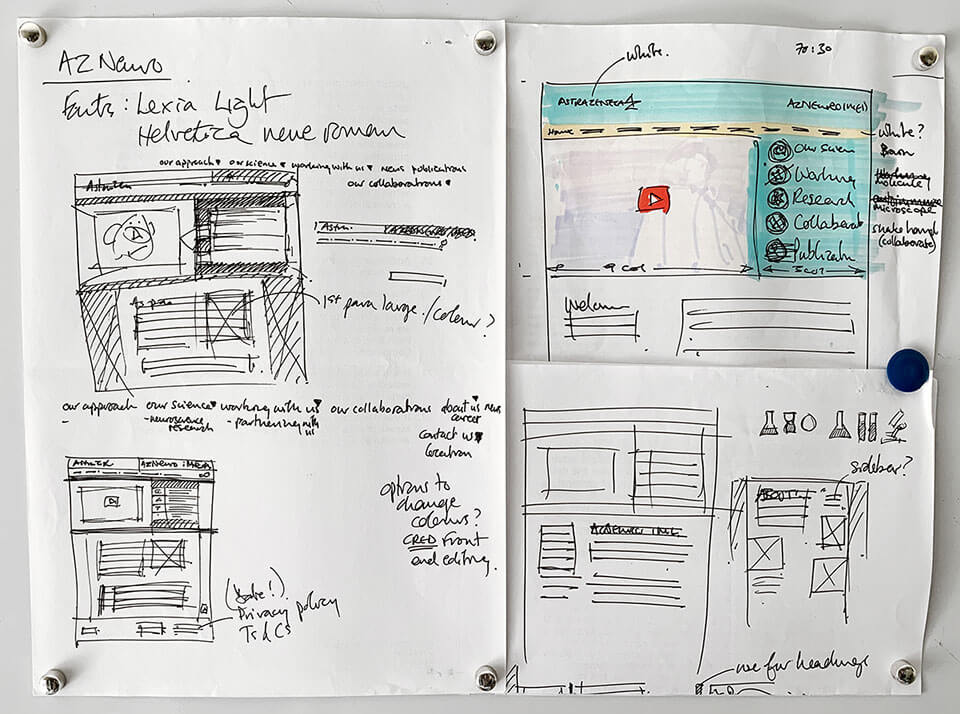 AZ Neuro
Fonts: Lexia Light
Helvetica neue roman
our approach our science working with us news publications
our collaborations
Astra
1st para large /colour?
our approach our science working with us our collaborations about us news
-neuroscience research - partnering with us career
contact us
location
options to
change
colours?
CRED front
end editing.
AZ Neuro iMED
Privacy policy
Ts & Cs
white.
70:30
ASTRAZENECA
AZ NEURO IMED
Home
white?
Our Scien
Working
Research
Collaborat
Publicatn
Brain
molecule
microscope
shake hands
(collaborate)
9 col
3 col
Welcome
sidebar?
ABOUT
use for headings